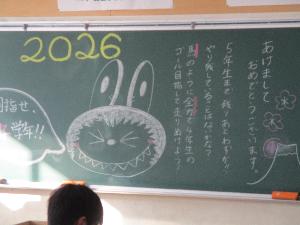 2026
あけまして
おめでとうございます。
5年生まで残りあとわずか!!
やり残していることはないかな?
馬のように全力で4年生の
ゴール目指して走りぬけよう!
目指せ、
学年!!